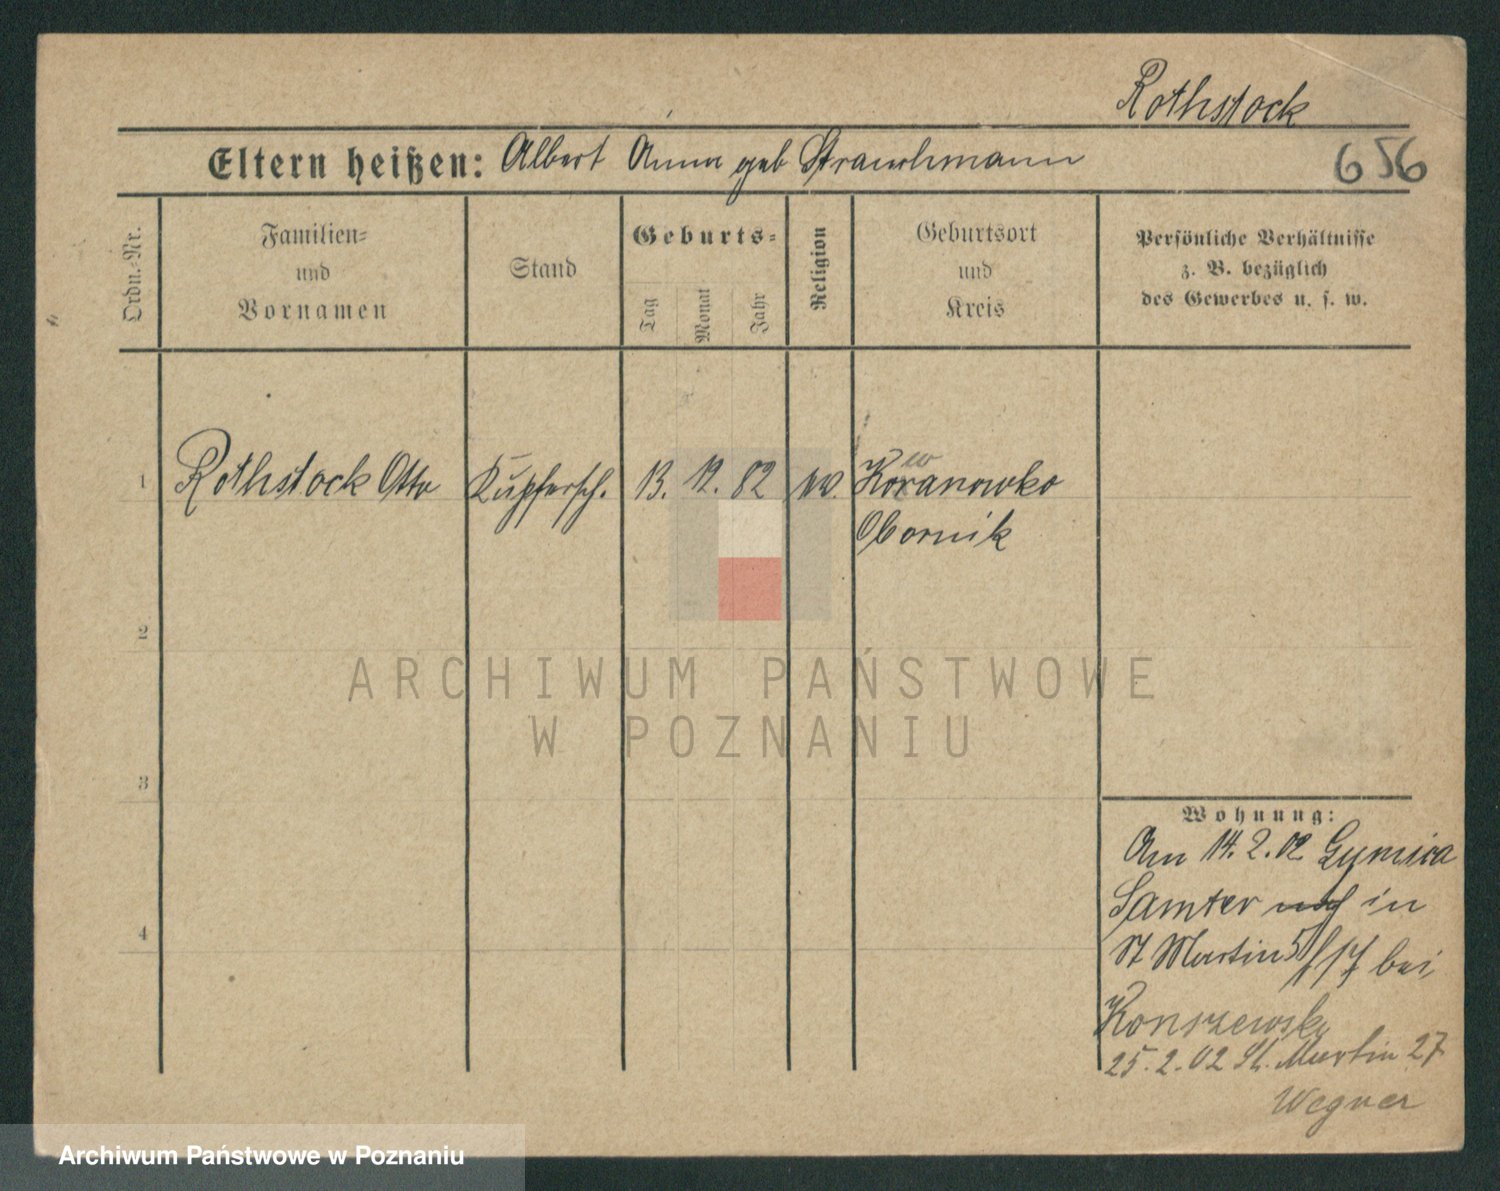 Rothstock
Eltern heißen: Albert Anna geb Strauchmann
656
Ordn.-Nr.
Familien-
und
Vornamen
Stand
Geburts-
Tag
Monat
Jahr
Religion
Geburtsort
und
Kreis
Persönliche Verhältnisse
z. B. bezüglich
des Gewerbes u. s. w.
1 Rothstock Otto Kupfersch. 13. 12. 82 ev. Kowanowko
Obornik
2
3
4
Wohnung:
Am 14. 2. 02
Samter nach in
St Martin bei
25. 2. 02 St. Martin 27
Wegner
ARCHIWUM PAŃSTWOWE
W POZNANIU
Archiwum Państwowe w Poznaniu